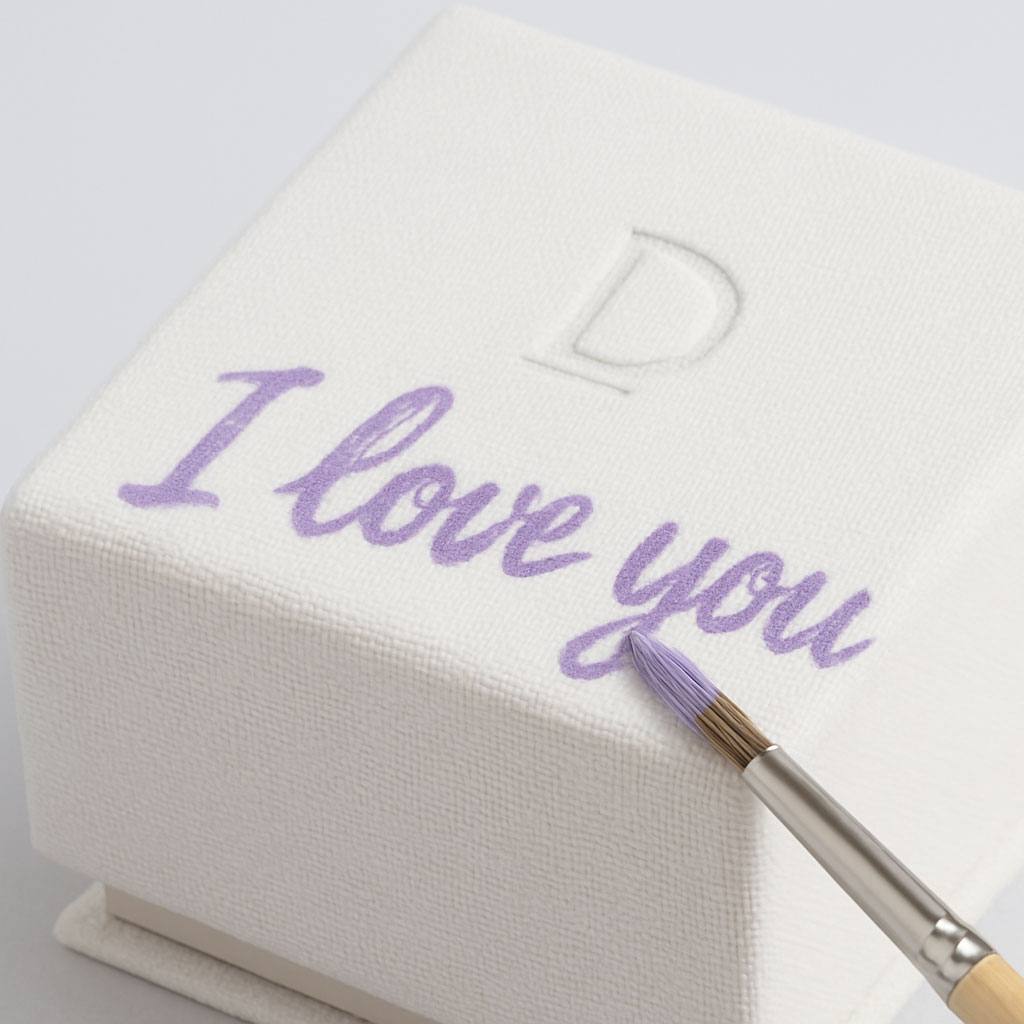 D
I love you